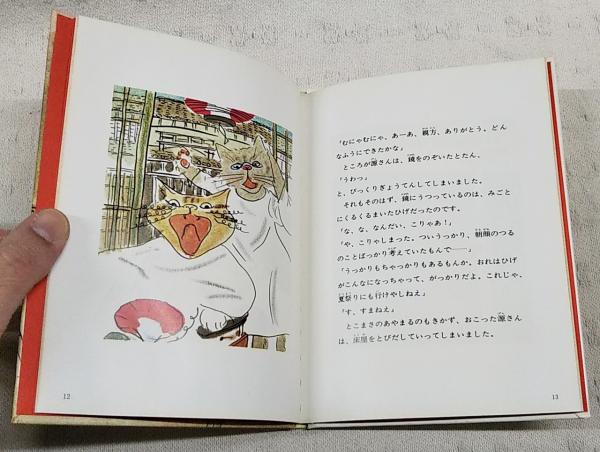 「むにゃむにゃ、あーあ、親方、ありがとう。どん
なふうにできたかな」
ところが源さんは、鏡をのぞいたとたん、
「うわっ」
と、びっくりぎょうてんしてしまいました。
それもそのはず、鏡にうつっているのは、みごと
にくるくるまいたひげだったのです。
「な、な、なんだい、こりゃあ！」
「や、こりゃしまった。ついうっかり、朝顔のつる
のことばっかり考えていたもんで――」
「うっかりもちゃっかりもあるもんか。おれはひげ
がこんなになっちゃって、がっかりだよ。これじゃ、
夏祭りにも行けやしねえ」
「す、すまねえ」
とこまさのあやまるのもきかず、おこった源さん
は、床屋をとびだしていってしまいました。
12
13